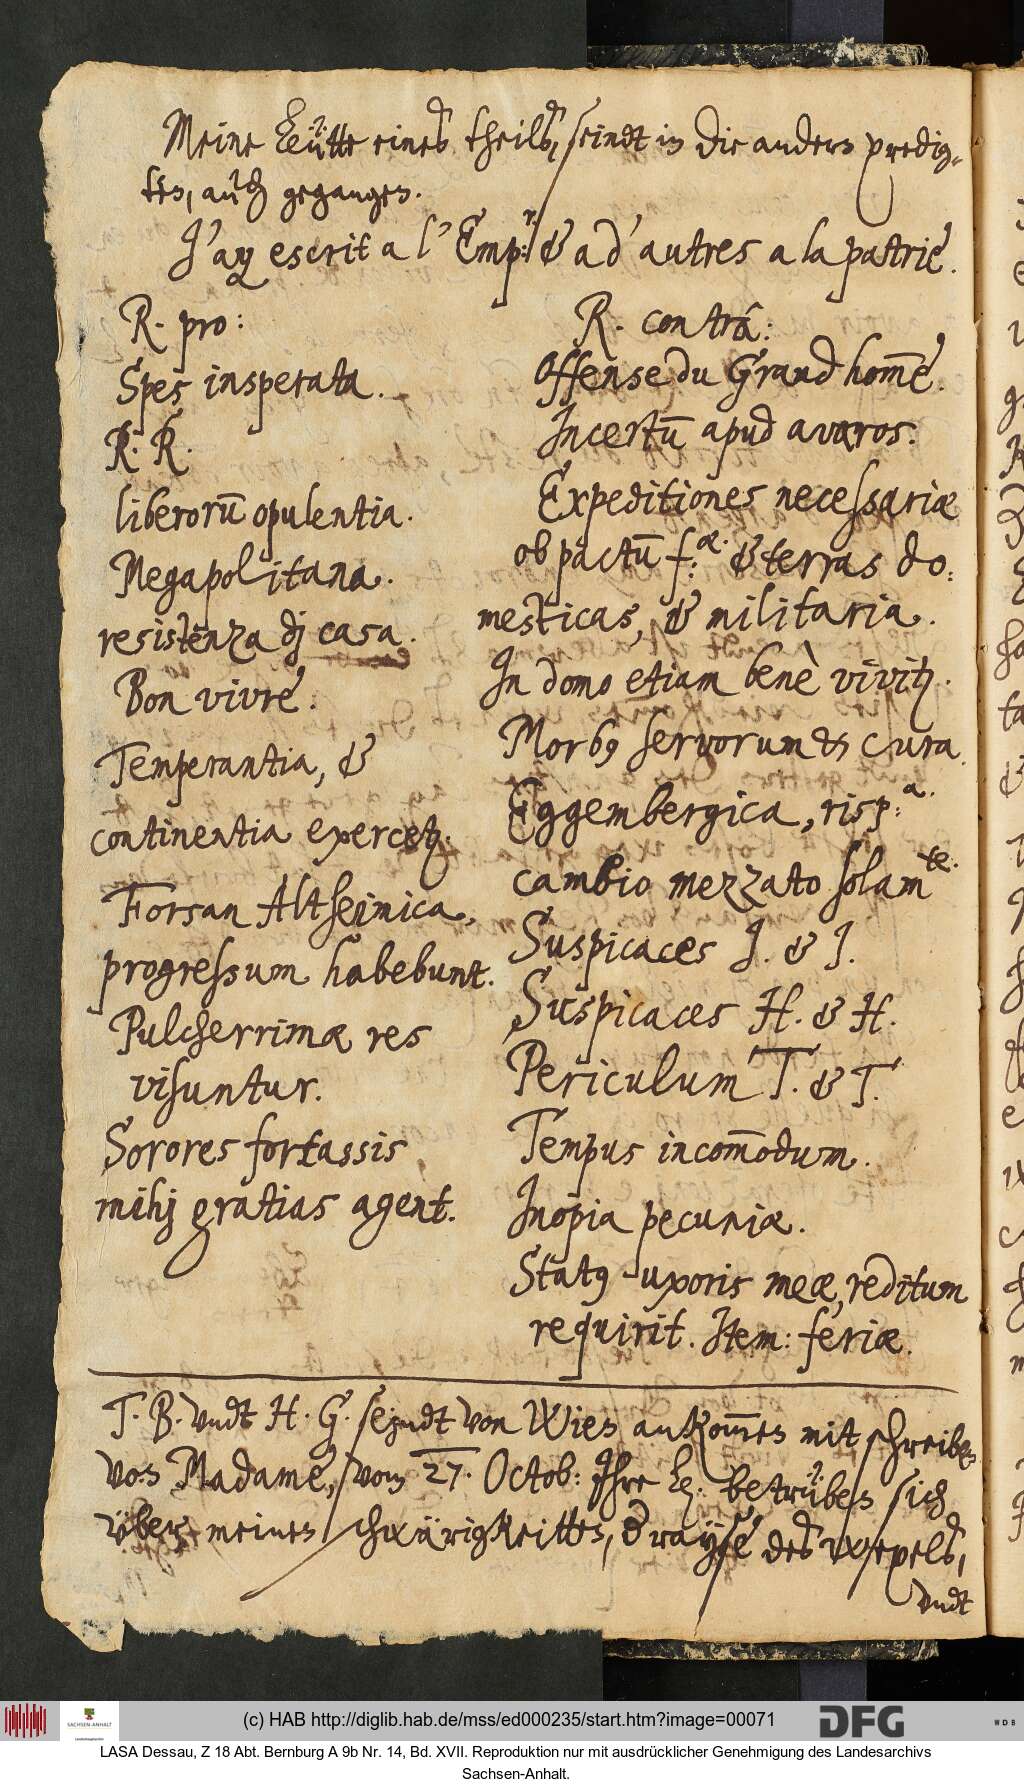 Meine Leütte eines theilß, seindt in die andern predig-
ten, auch gegangen.
J'ay escrit a l'Emp:r & a d'autres a la patrie.
R. pro:
Spes insperata.
R. R.
liberorū opulentia.
Megapolitana.
resistenza dj casa.
Bon vivre.
Temperantia, &
continentia exercetꝫ.
Forsan Altheimica,
progressum habebunt.
Pulcherrimæ res
visuntur.
Sorores fortassis
mihj gratias agent.
R. contrà:
Offense du Grand hom̄e.
Incertū apud avaros.
Expeditiones necessariæ
ob pactū f:æ. & terras do:
mesticas, & militaria.
In domo etiam benè vivitꝫ.
Morbꝰ servorum & cura.
Eggembergica, risp:a.
cambio mezzato solamte.
Suspicaces J. & J.
Suspicaces H. & H.
Periculum T. & T.
Tempus incom̄odum.
Inopia pecuniæ.
Statꝰ uxoris meæ, reditum
requirit. Item: feriæ.
T. B. vndt H. G. seyndt von Wien ankom̄en mit schreiben
von Madame, vom 27. Octob: Ihre L. betrüben sich
über meinen schwürigkeitten, d rayse des wexels,
vndt
(c) HAB http://diglib.hab.de/mss/ed000235/start.htm?image=00071
SACHSEN-ANHALT
DFG
WDB
LASA Dessau, Z 18 Abt. Bernburg A 9b Nr. 14, Bd. XVII. Reproduktion nur mit ausdrücklicher Genehmigung des Landesarchivs
Sachsen-Anhalt.